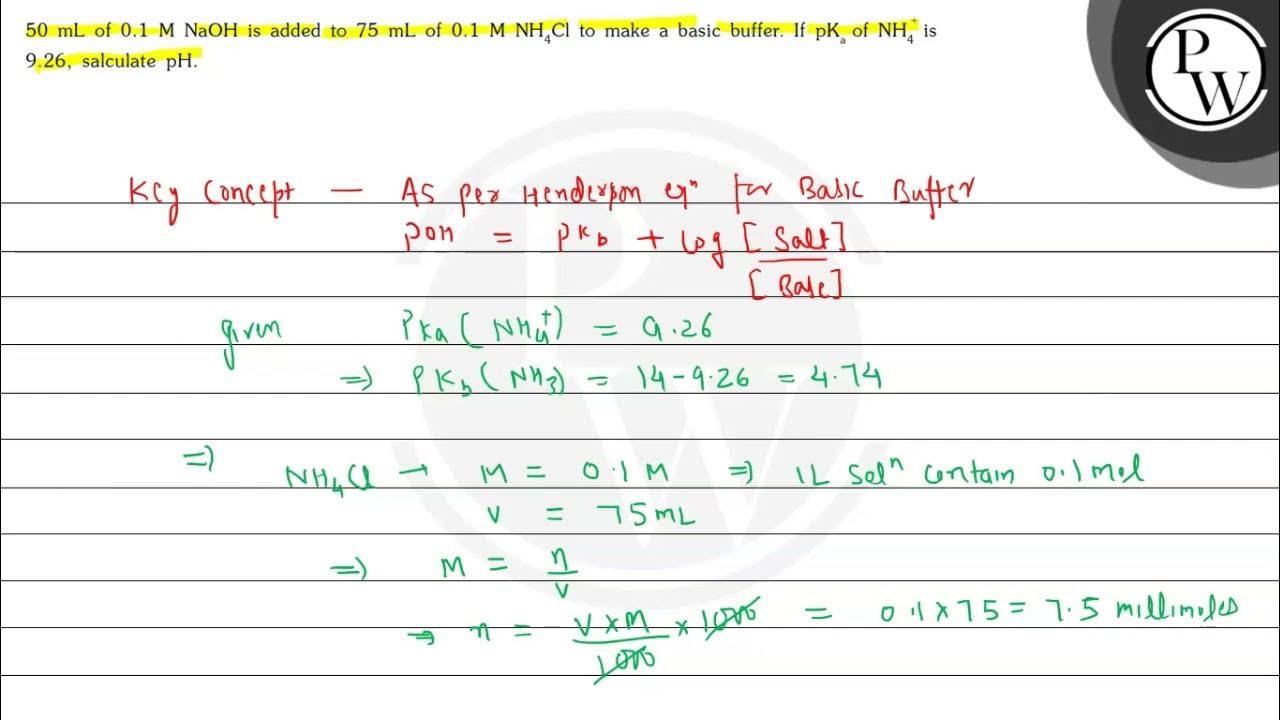 50 mL of 0.1 M NaOH is added to 75 mL of 0.1 M NH₄Cl to make a basic buffer. If pKₐ of NH₄⁺ is
9.26, salculate pH.
P
W
Key Concept — As per Henderson eqⁿ for Basic Buffer
POH = PKb + log [Salt]
[Base]
given PKa (NH₄⁺) = 9.26
⇒ PKb (NH₃) = 14-9.26 = 4.74
⇒ NH₄Cl → M = 0.1 M ⇒ 1L Solⁿ contain 0.1 mol
V = 75 mL
⇒ M = n/V
⇒ n = V×M/1000 × 1000 = 0.1×75 = 7.5 millimoles